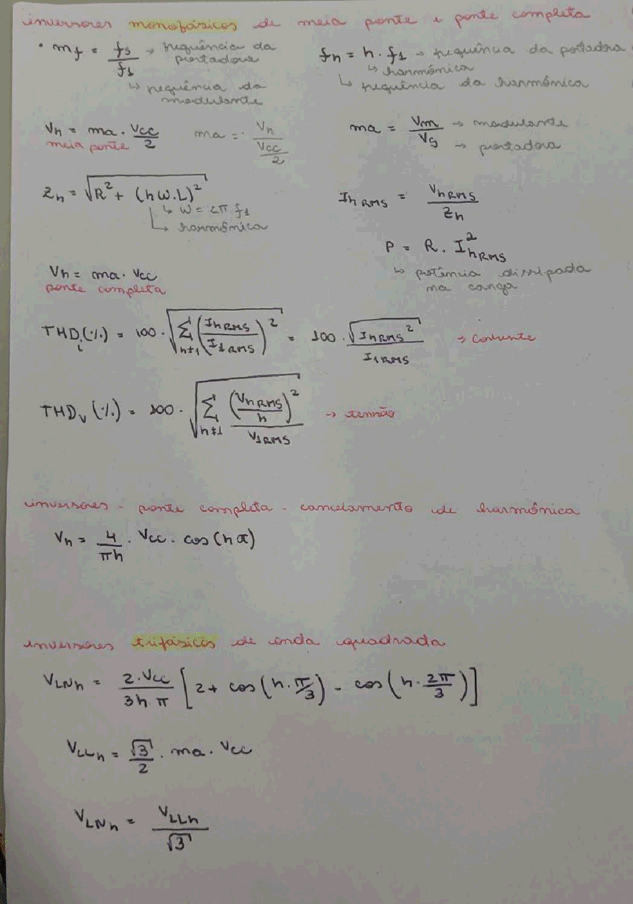 inversores monofásicos de meia ponte e ponte completa
• mf = fs/f1 → frequência da portadora
↳ frequência da modulante
fh = h · f1 → frequência da portadora
↳ harmônica
↳ frequência da harmônica
Vh = ma · Vcc/2
meia ponte
ma = Vh/(Vcc/2)
ma = Vm/Vs → modulante
→ portadora
Zh = √(R² + (hω.L)²)
↳ ω = 2π f1
↳ harmônica
IhRMS = VhRMS/Zh
P = R · I²hRMS
↳ potência dissipada na carga
Vh = ma · Vcc
ponte completa
THDi(%) = 100 · √(∑h≠1 (IhRMS/I1RMS)²) = 100 · √(IhRMS²)/I1RMS → corrente
THDv(%) = 100 · √(∑h≠1 (VhRMS/h)²/V1RMS) → tensão
inversores - ponte completa - cancelamento de harmônica
Vh = 4/πh · Vcc · cos(hα)
inversores trifásicos de onda quadrada
VLNh = 2·Vcc/3hπ [2 + cos(h·π/3) - cos(h·2π/3)]
VLLh = √3/2 · ma · Vcc
VLNh = VLLh/√3